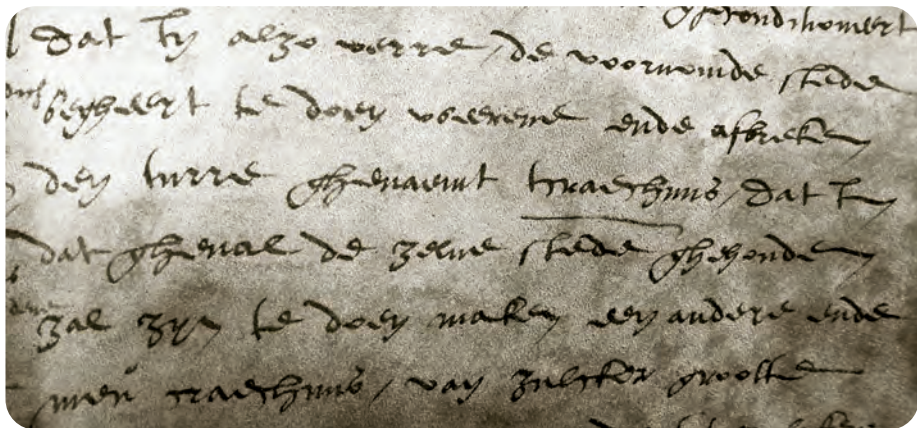 gheconditionneert
dat zy alzo verre de voornomde stede
begheert te doen weerene ende afbreken
den turre ghenaemt tcraechuus, dat zy
dat gheval de zelve stede ghehouden
zal zyn te doen maken een andere ende
craechuus, van zulcker grootte